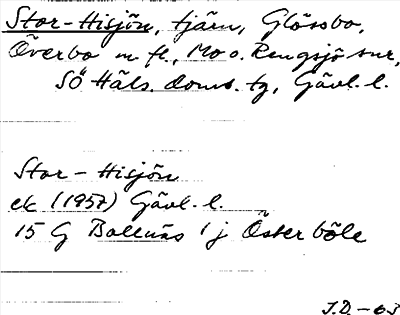 Stor-Hisjön, tjärn, Glössbo,
Överbo m fl., Mo o. Rengsjö snr,
SÖ Häls. doms. tg, Gävl. l.
Stor-Hisjön
ek (1957) Gävl. l.
15 G Bollnäs 1 j Österböle
J.D. -63